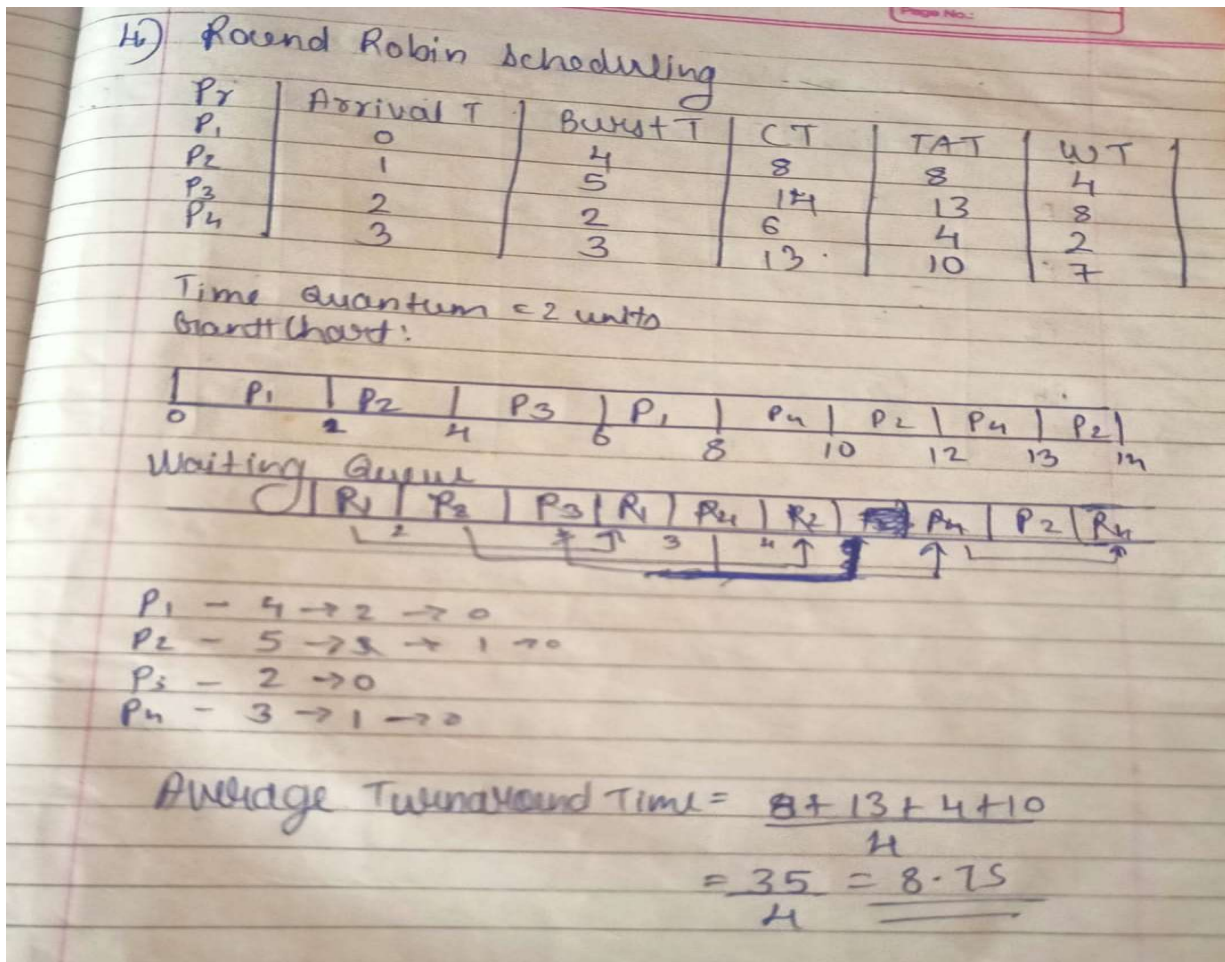 Page No.:
4) Round Robin Scheduling
Pr Arrival T Burst T CT TAT WT
P1 0 4 8 8 4
P2 1 5 14 13 8
P3 2 2 6 4 2
P4 3 3 13 10 7
Time Quantum = 2 units
Grantt Chart:
P1 P2 P3 P1 P4 P2 P4 P2
0 2 4 6 8 10 12 13 14
Waiting Queue
P1 P2 P3 P1 P4 P2 P4 P2 P4
2 3 4 1
P1 - 4 → 2 → 0
P2 - 5 → 3 → 1 → 0
P3 - 2 → 0
P4 - 3 → 1 → 0
Average Turnaround Time = 8 + 13 + 4 + 10
4
= 35 = 8.75
4